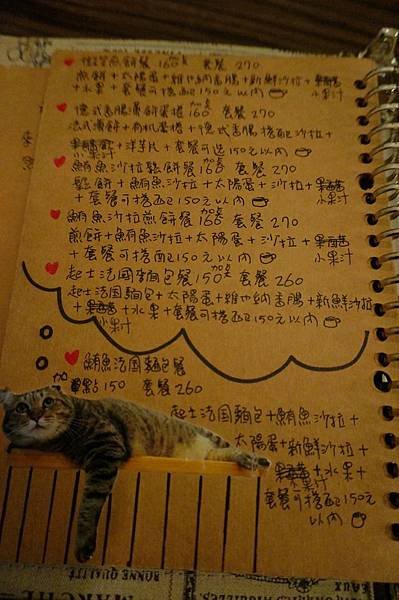 微笑煎餅餐 160 加点 套餐 270
煎餅+太陽蛋+維也納香腸+新鮮沙拉+
+水果+套餐可搭配150元以內 小果汁
德式香腸薄餅蛋捲 加点 160 套餐 270
法式薄餅+有机蛋捲+德式香腸搭配沙拉+
小果汁+洋芋片+套餐可選150元以內
鮪魚沙拉鬆餅餐 加点 160 套餐 270
鬆餅+鮪魚沙拉+太陽蛋+沙拉+
+套餐可搭配150元以內 小果汁
鮪魚沙拉煎餅餐 加点 160 套餐 270
煎餅+鮪魚沙拉+太陽蛋+沙拉+
+套餐可搭配150元以內 小果汁
起士法国麵包餐 加点 150 套餐 260
起士法国麵包+太陽蛋+維也納香腸+新鮮沙拉
+水果+套餐可搭配150元以內
小果汁
鮪魚法國麵包餐
加 單點 150 套餐 260
起士法国麵包+鮪魚沙拉+
太陽蛋+新鮮沙拉+
+水果+
小果汁
套餐可搭配150元
以內
BONNE QUALITÉ